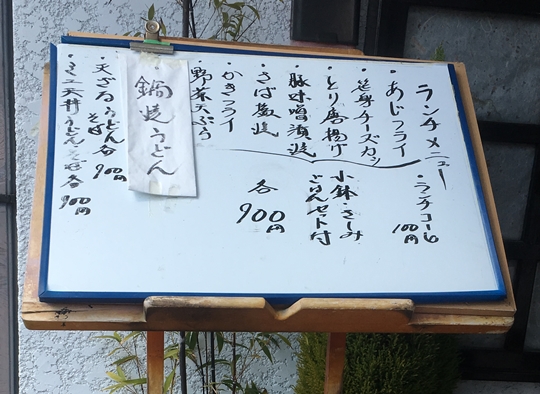 ランチメニュー
・あじフライ
・笹身チーズカツ
・とり唐揚げ
・豚味噌漬焼
・さば塩焼
・かきフライ
・野菜天ぷら
小鉢・さしみ
ごはんセット付
各
900円
・ランチコーヒー
100円
鍋焼うどん
・天ざるうどん
そば各
900円
・ミニ天丼うどん・そば各
900円